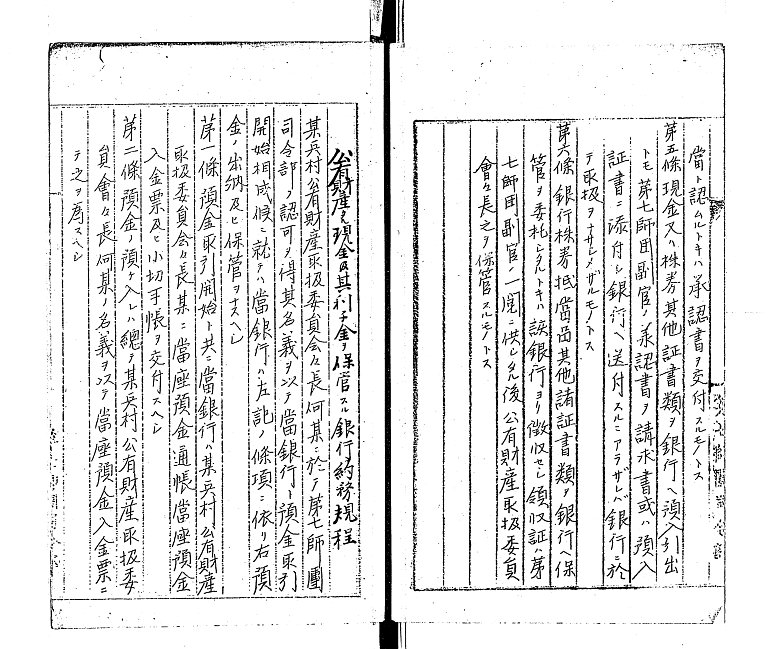 當ト認ムルトキハ承認書ヲ交付スルモノトス
第五條現金又ハ株券其他証書類ヲ銀行ヘ預入引出
トモ第七師団副官ノ承認書ヲ請求書或ハ預入
証書ニ添付シ銀行ヘ送付スルニアラザレバ銀行ニ於
テ取扱ヲナサヾルモノトス
第六條銀行株券抵當品其他諸証書類ヲ銀行ヘ保
管ヲ委托シタルトキハ該銀行ヨリ徴収セシ領収証ハ第
七師団副官ノ一閲ニ供シタル後公有財産取扱委員
會々長之ヲ保管スルモノトス
公有財産ノ現金及其利子金ヲ保管スル銀行納務規程
某兵村公有財産取扱委員会々長何某ニ於テ第七師團
司令部ノ認可ヲ得其名義ヲ以テ當銀行ト預金取引
開始相成候ニ就テハ當銀行ハ左記ノ條項ニ依リ右預
金ノ出納及ヒ保管ヲナスヘシ
第一條預金取引開始ト共ニ當銀行ハ某兵村公有財産
取扱委員会々長某ニ當座預金通帳當座預金
入金票及ヒ小切手帳ヲ交付スヘシ
第二條預金ノ預ケ入レハ總テ某兵村公有財産取扱委
員會々長何某ノ名義ヲ以テ當座預金入金票ニ
テ之ヲ為スヘシ